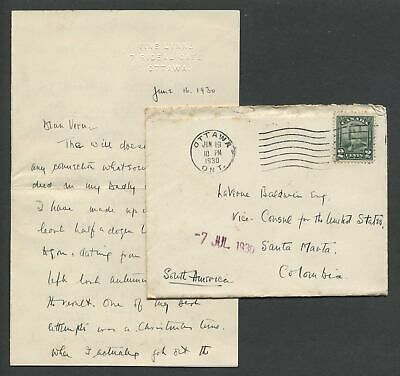 RIDEAU GATE
OTTAWA
June 16. 1930
Dear Verne,
This will doesn't
any connection whatsoever
deed in my badly
I have made up
least half a dozen
again & dating from
left last autumn
the result. One of my best
attempts was a Christmas time.
When I actually got out the
OTTAWA
JUN 19
10 PM
1930
ONT.
CANADA
2 CENTS 2
LaVerne Baldwin Esq.
Vice-Consul for the United States
-7 JUL 1930
Santa Marta
South America
Colombia